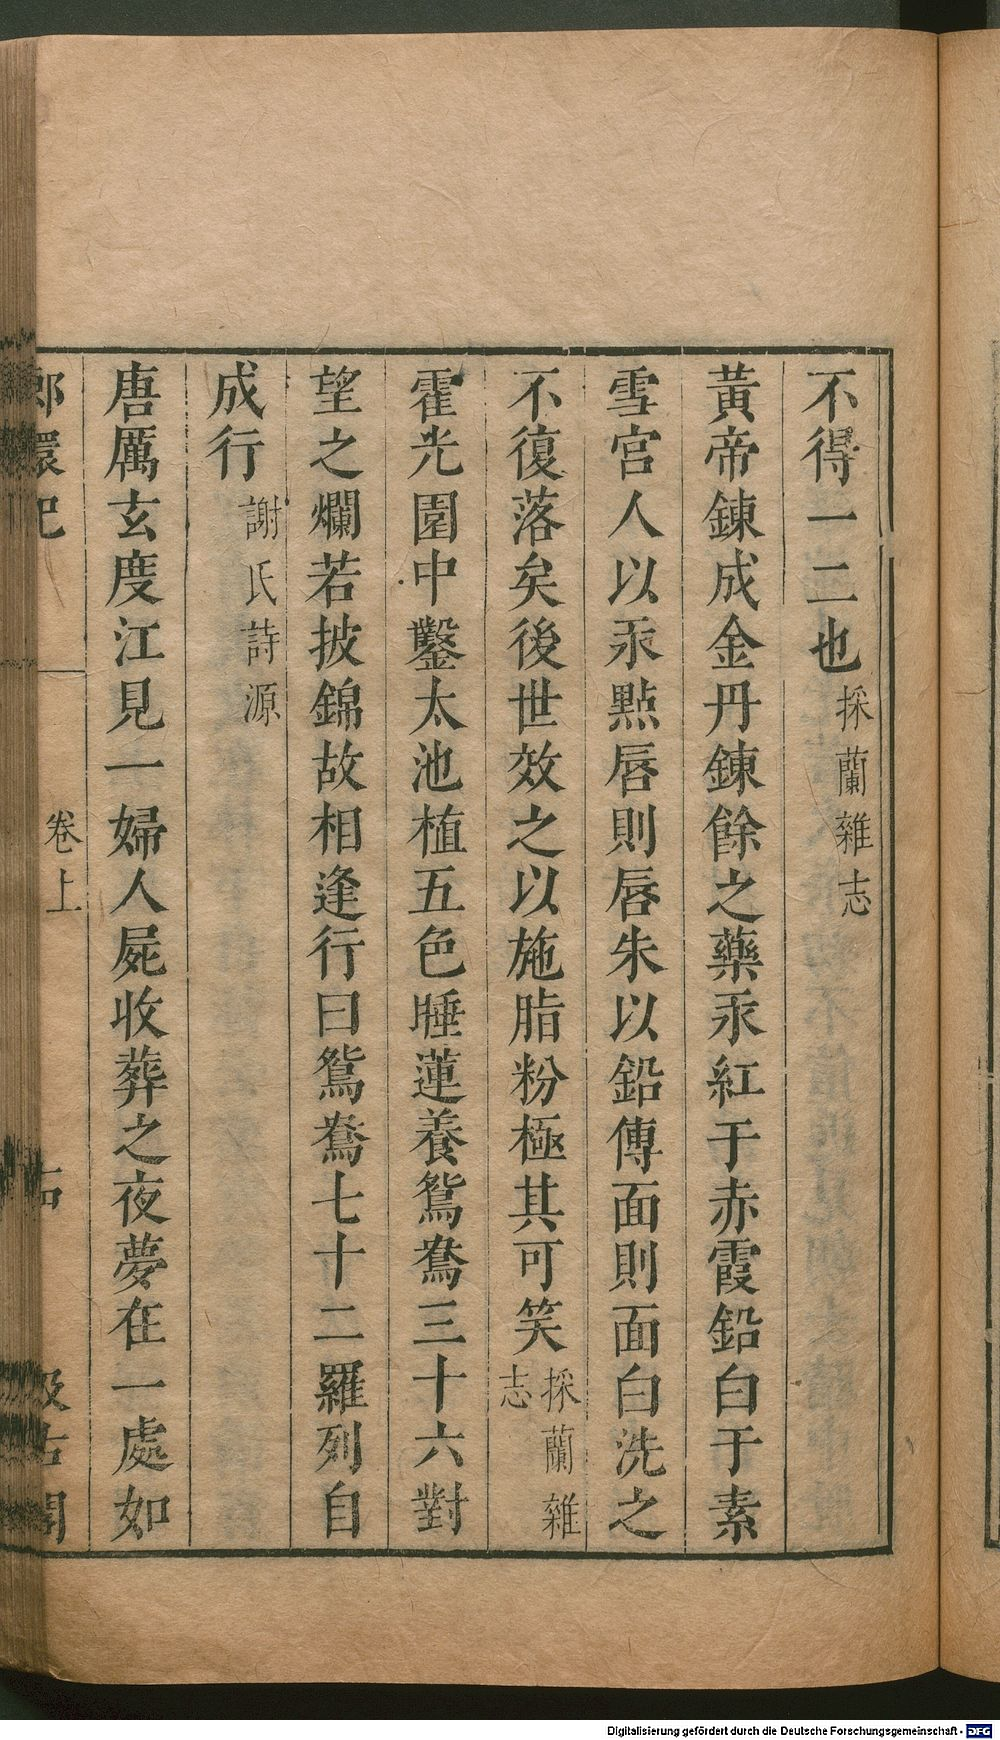 不得一二也採蘭雜志
黃帝鍊成金丹鍊餘之藥汞紅于赤霞鉛白于素
雪宮人以汞點唇則唇朱以鉛傅面則面白洗之
不復落矣後世效之以施脂粉極其可笑採蘭雜志
霍光園中鑿太池植五色睡蓮養鴛鴦三十六對
望之爛若披錦故相逢行曰鴛鴦七十二羅列自
成行謝氏詩源
唐厲玄度江見一婦人屍收葬之夜夢在一處如
卷上
Digitalisierung gefördert durch die Deutsche Forschungsgemeinschaft - DFG